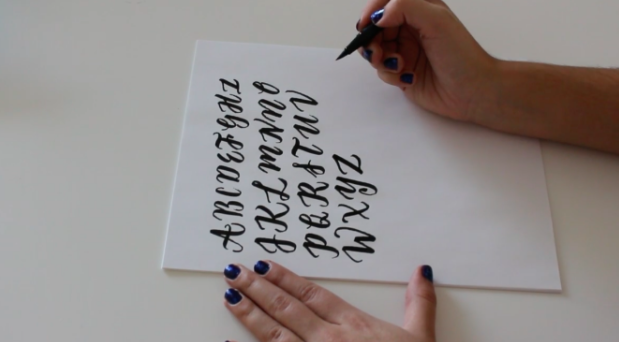 ABCDEFGHI
JKLMNNO
PQRSTUV
WXYZ